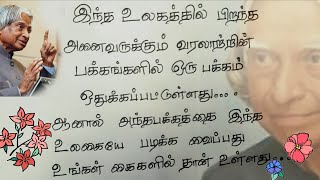 இந்த உலகத்தில் பிறந்த
அனைவருக்கும் வரலாற்றின்
பக்கங்களில் ஒரு பக்கம்
ஒதுக்கப்பட்டுள்ளது....
ஆனால் அந்தபக்கத்தை இந்த
உலகையே படிக்க வைப்பது
உங்கள் கைகளில் தான் உள்ளது...